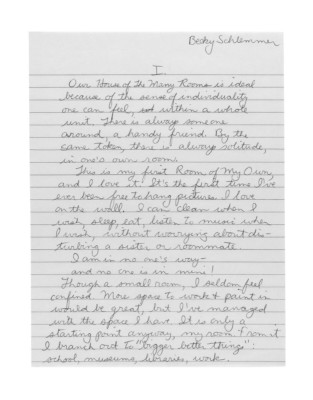 Becky Schlemmer
I.
Our House of The Many Rooms is ideal
because of the sense of individuality
one can feel, within a whole
unit. There is always someone
around, a handy friend. By the
same token, there is always solitude,
in one's own room.
This is my first Room of My Own,
and I love it. It's the first time I've
ever been free to hang pictures I love
on the wall. I can clean when I
wish, sleep, eat, listen to music when
I wish, without worrying about dis-
turbing a sister or roommate.
I am in no one's way—
and no one is in mine!
Though a small room, I seldom feel
confined. More space to work & paint in
would be great, but I've managed
with the space I have. It is only a
starting point anyway, my room, from it
I branch out to "bigger better things":
school, museums, libraries, work.